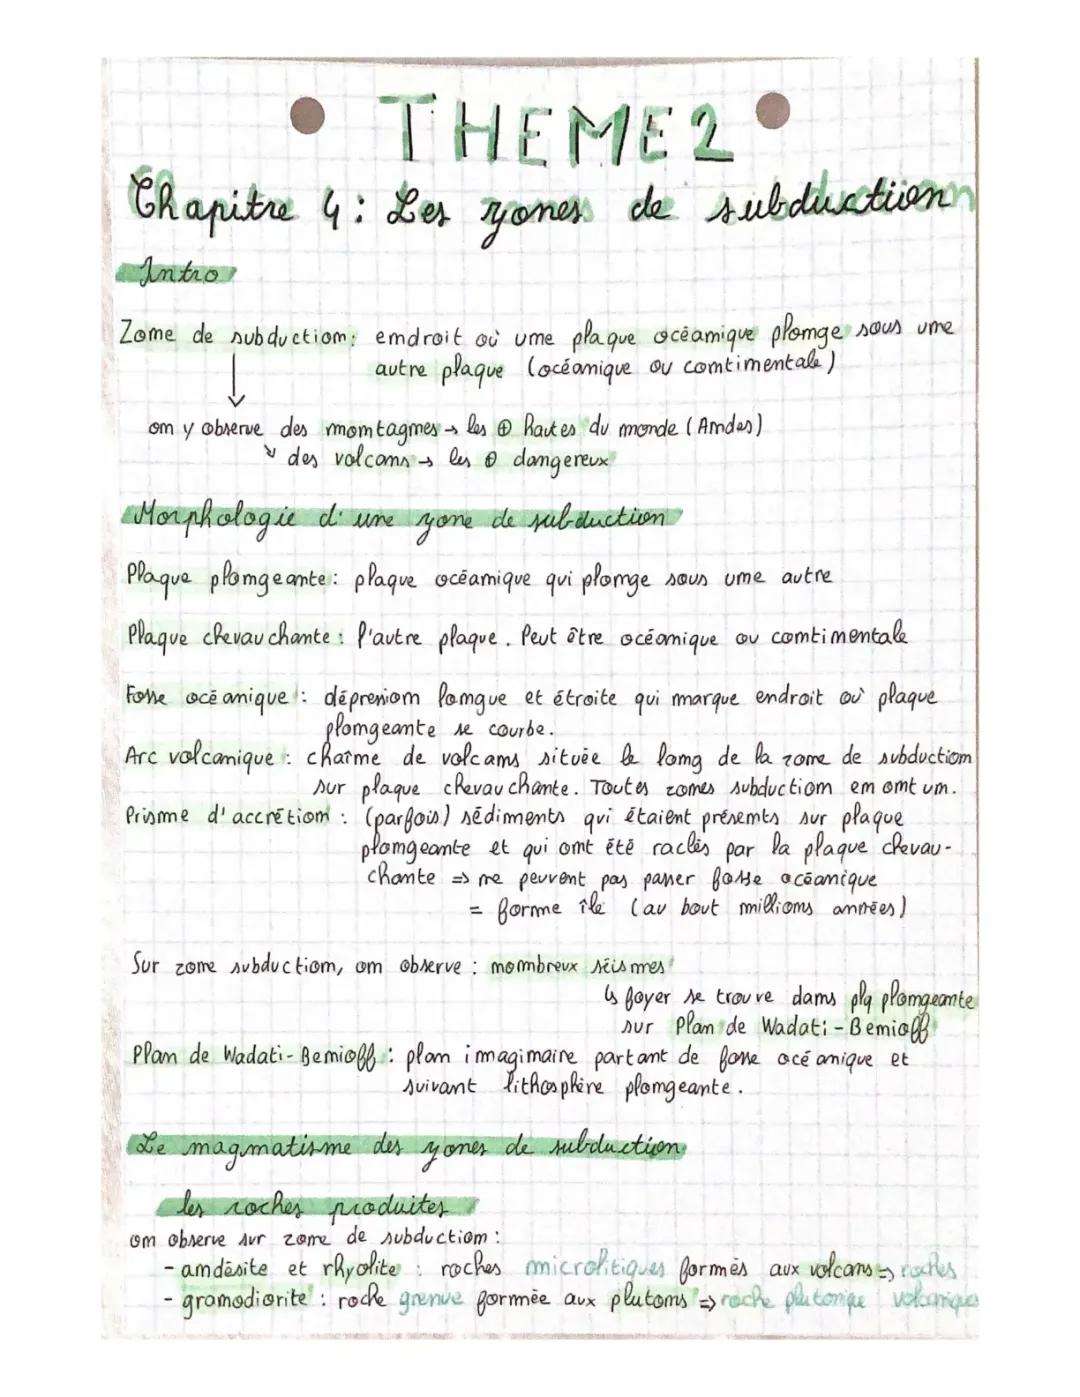 THEME 2
Chapitre 4 : Les zones de subduction
Intro
Zone de subduction : endroit où une plaque océanique plonge sous une
autre plaque (océanique ou continentale)
on y observe des montagnes → les ⊕ hautes du monde (Andes)
↘ des volcans → les ⊕ dangereux
Morphologie d'une zone de subduction
Plaque plongeante : plaque océanique qui plonge sous une autre
Plaque chevauchante : l'autre plaque. Peut être océanique ou continentale
Fosse océanique : dépression longue et étroite qui marque endroit où plaque
plongeante se courbe.
Arc volcanique : chaîne de volcans située le long de la zone de subduction
sur plaque chevauchante. Toutes zones subduction en ont un.
Prisme d'accrétion : (parfois) sédiments qui étaient présents sur plaque
plongeante et qui ont été raclés par la plaque chevau-
chante ⇒ ne peuvent pas passer fosse océanique
= forme île (au bout millions années)
Sur zone subduction, on observe : nombreux séismes
↳ foyer se trouve dans plq plongeante
sur Plan de Wadati-Benioff
Plan de Wadati-Benioff : plan imaginaire partant de fosse océanique et
suivant lithosphère plongeante.
Le magmatisme des zones de subduction
les roches produites
on observe sur zone de subduction :
- andésite et rhyolite : roches microlitiques formés aux volcans ⇒ roches
- granodiorite : roche grenue formée aux plutons ⇒ roche plutonique volcaniques